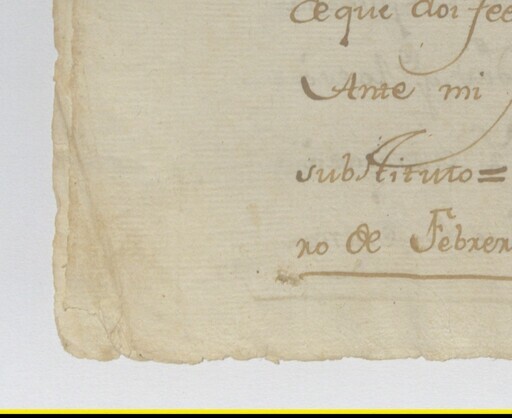 de que doi fee
Ante mi
substituto =
ro de Febrer